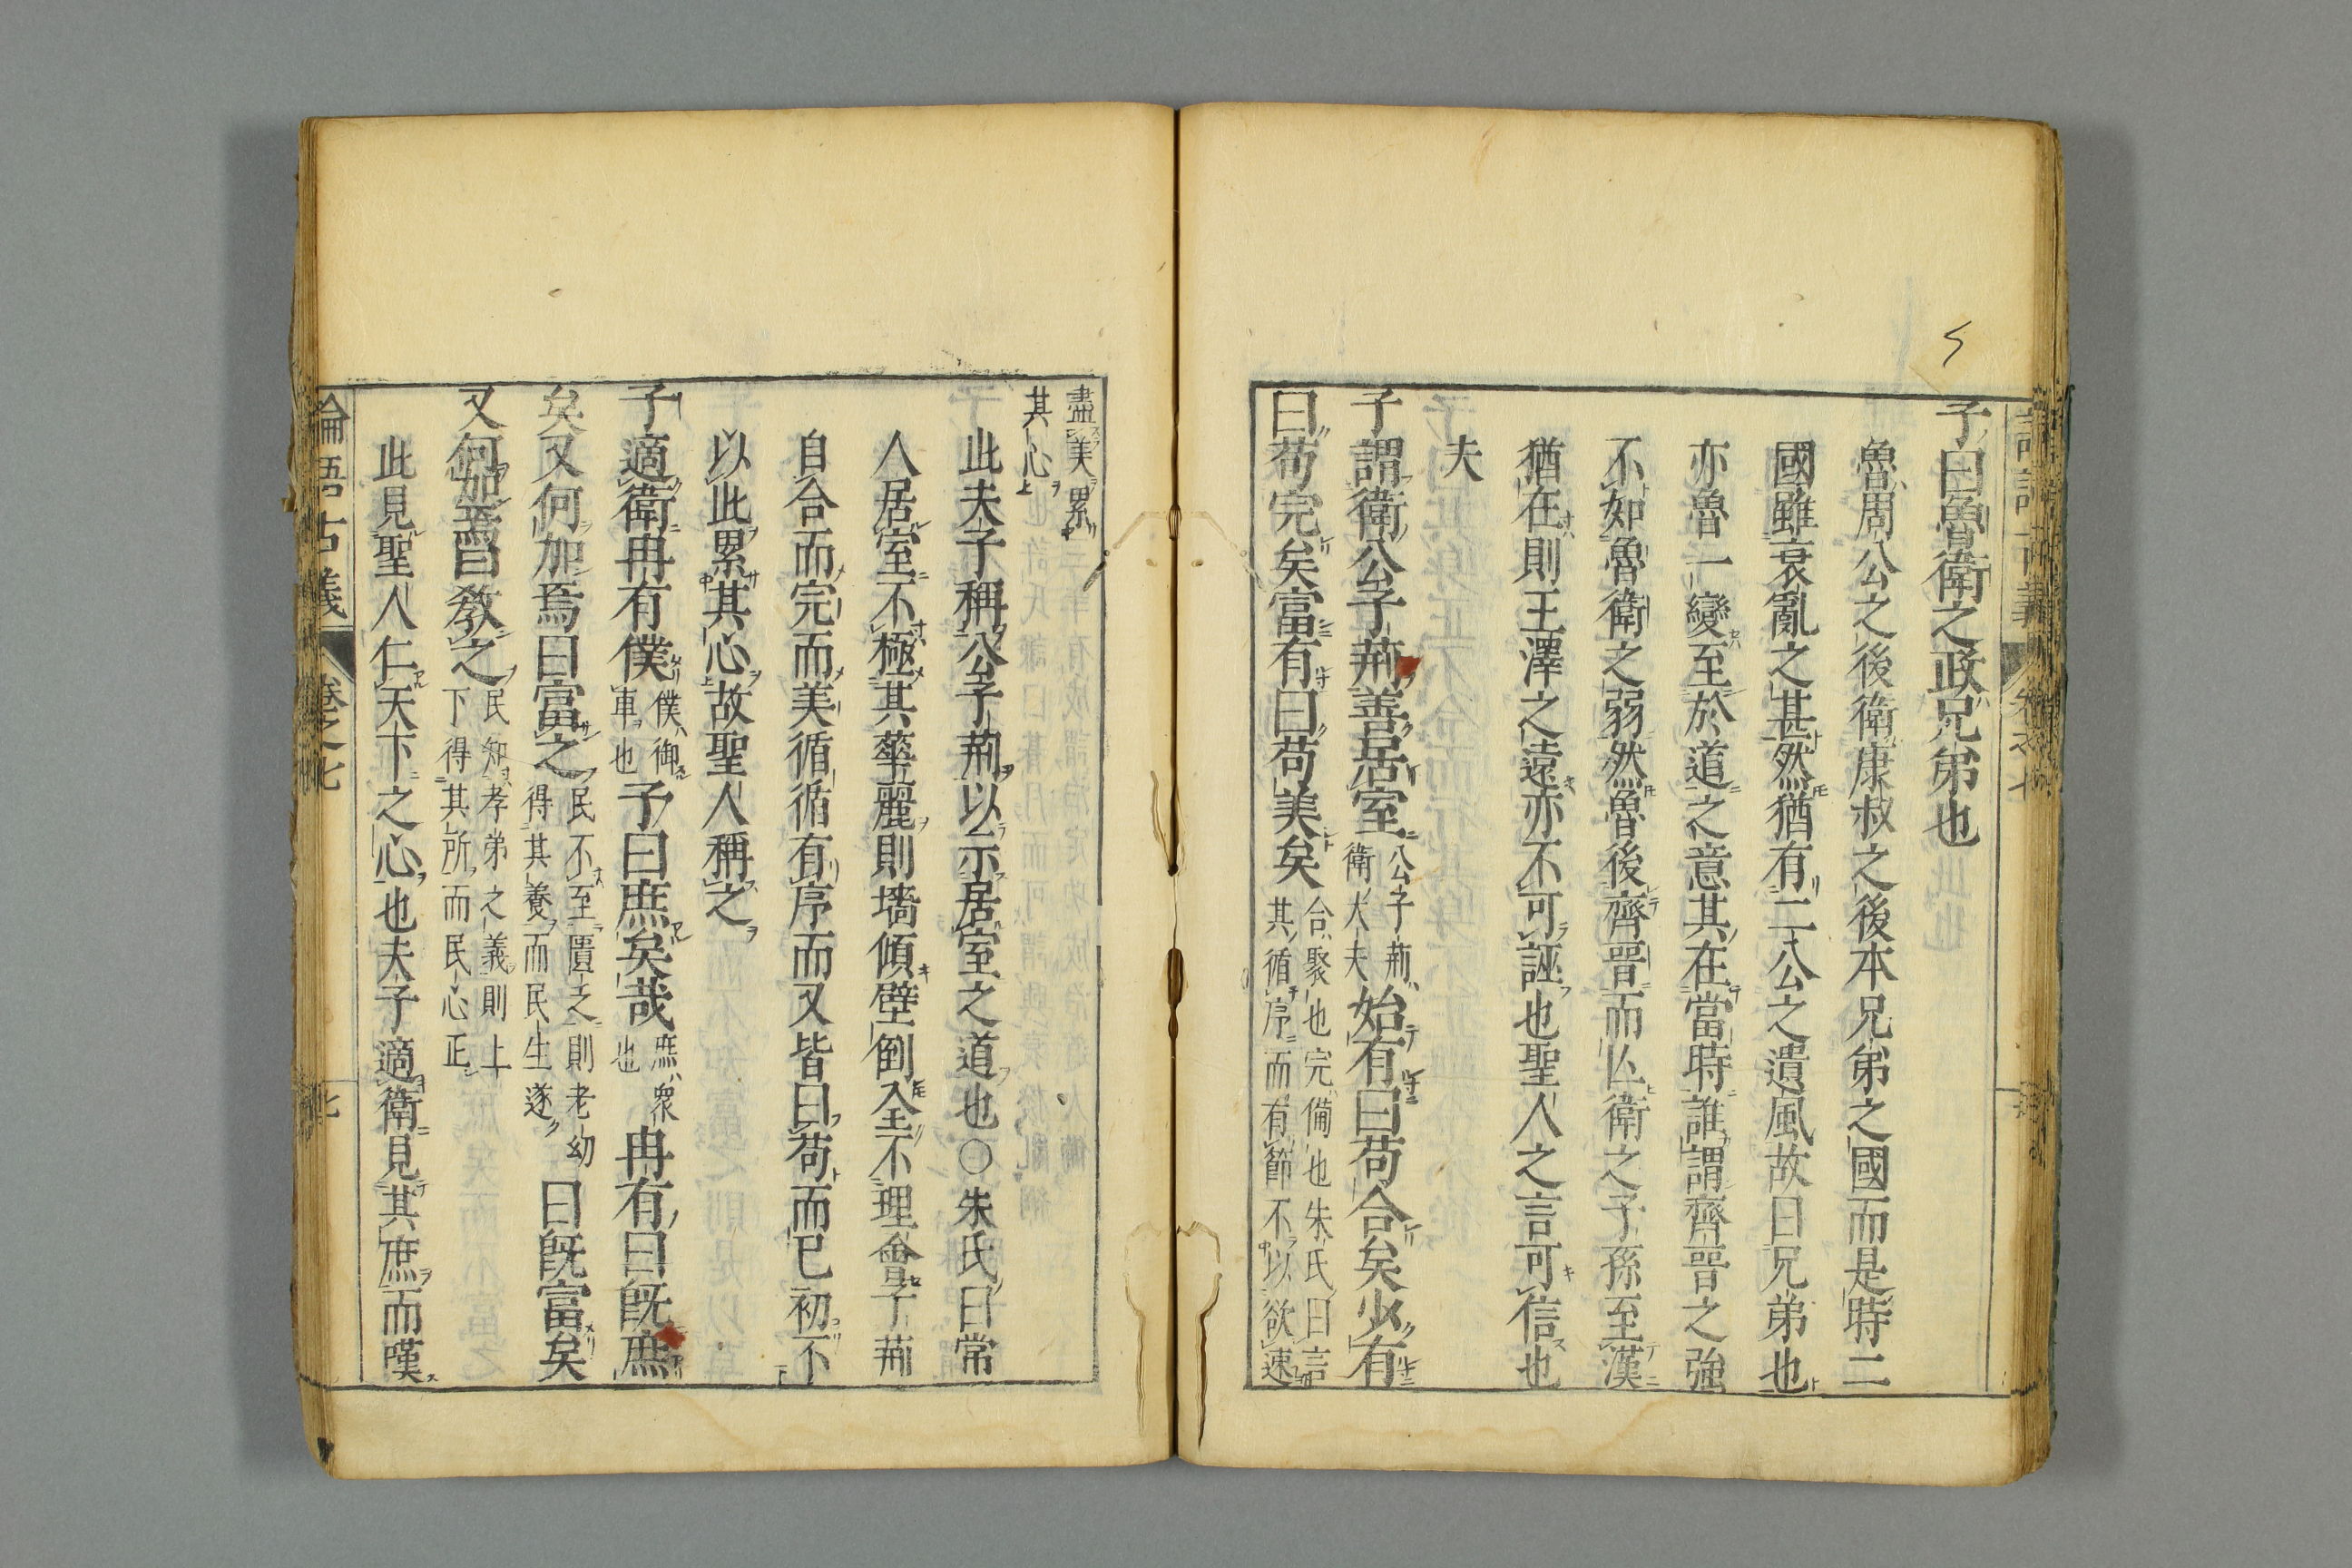 子曰魯衛之政兄弟也
魯周公之後衛康叔之後本兄弟之國而是時二
國雖衰亂之甚然猶有二公之遺風故曰兄弟也
亦魯一變至於道之意其在當時誰謂齊晉之強
不如魯衛之弱然魯後齊晉而亾衛之子孫至漢
猶在則王澤之遠亦不可誣也聖人之言可信也
夫
子謂衛公子荊善居室公子荊衛大夫始有曰苟合矣少有
曰苟完矣富有曰苟美矣合聚也完備也朱氏曰言其循序而有節不以欲速
盡美累其心也
此夫子稱公子荊以示居室之道也○朱氏曰常
人居室不極其華麗則墻傾壁倒全不理會子荊
自合而完而美循循有序而又皆曰苟而已初不
以此累其心故聖人稱之
子適衛冉有僕僕御車也子曰庶矣哉庶衆也冉有曰既庶
矣又何加焉曰富之民不至匱乏則老幼得其養而民生遂曰既富矣
又何加焉曰敎之民知孝弟之義則上下得其所而民心正
此見聖人仁天下之心也夫子適衛見其庶而嘆
論語古義
卷之七
七